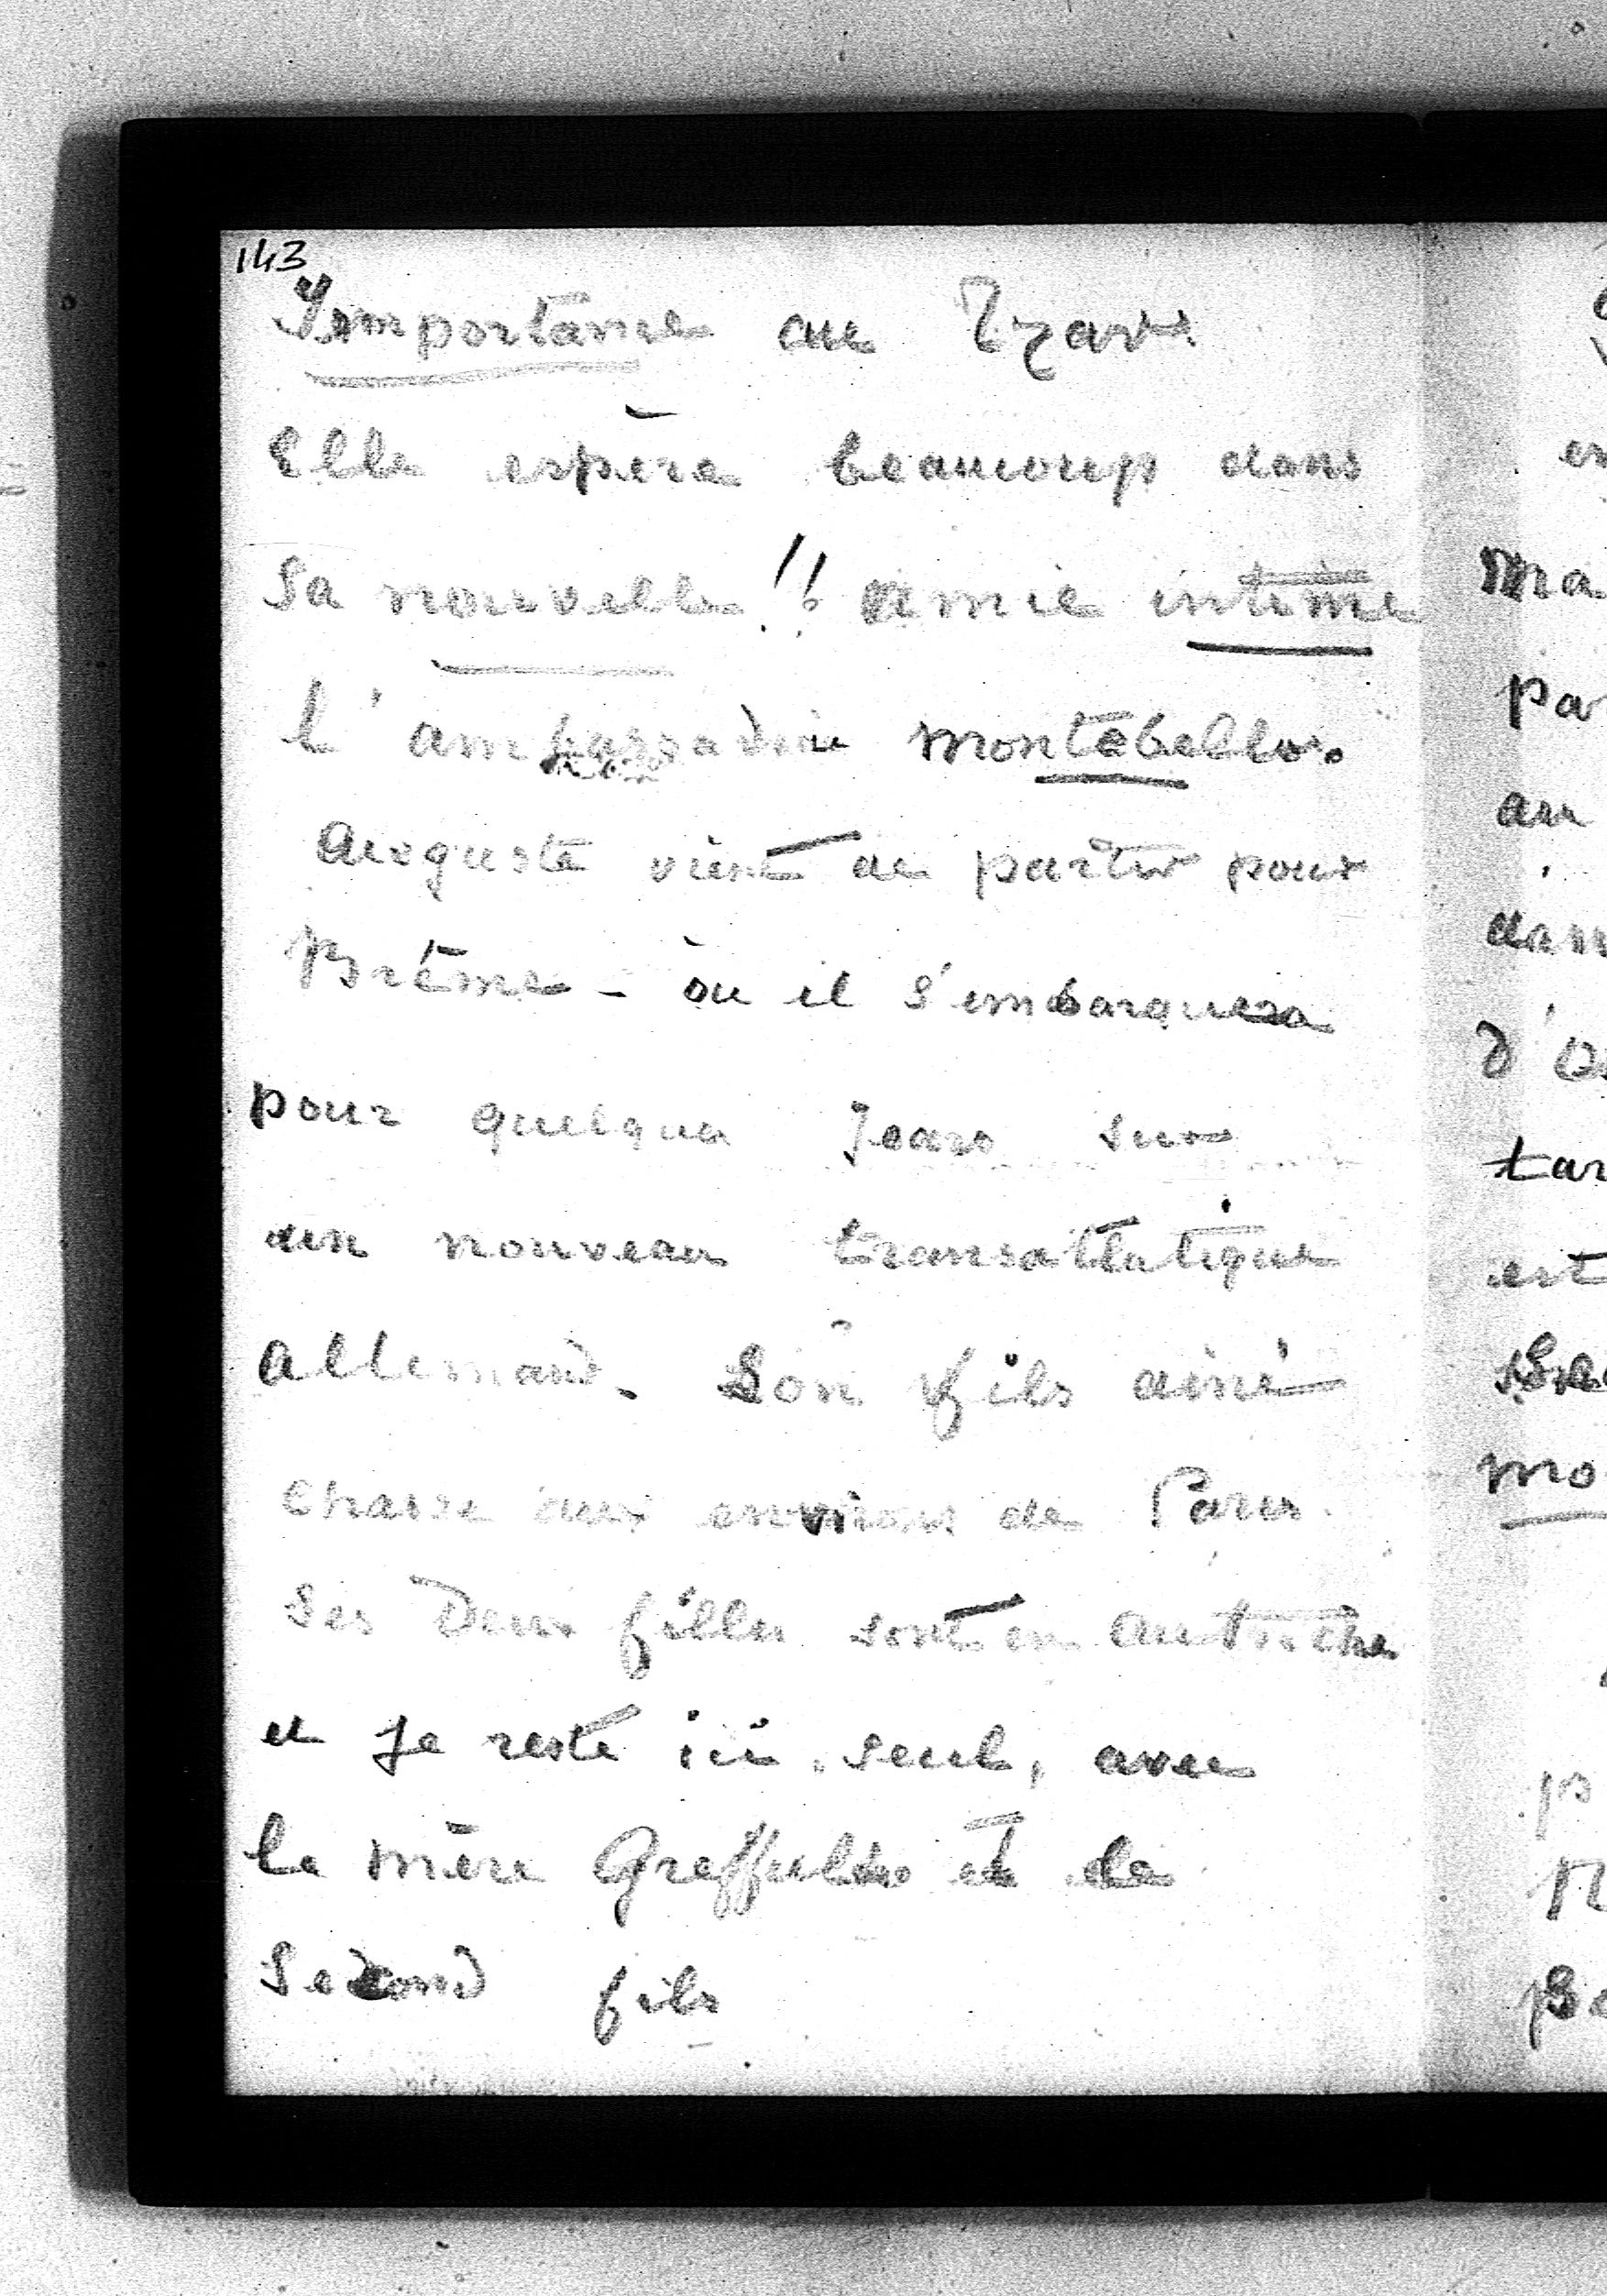 143
Importance au Tzar.
Elle espère beaucoup dans
sa nouvelle!! amie intime
l'ambassadrice Montebello.
Auguste vient de partir pour
Brême - où il s'embarquera
pour quelques jours sur
un nouveau transatlatique
allemand. Son fils ainé
chasse aux environs de Paris.
Ses deux filles sont en Autriche
et je reste ici seul, avec
la mère Greffulhe et le
second fils